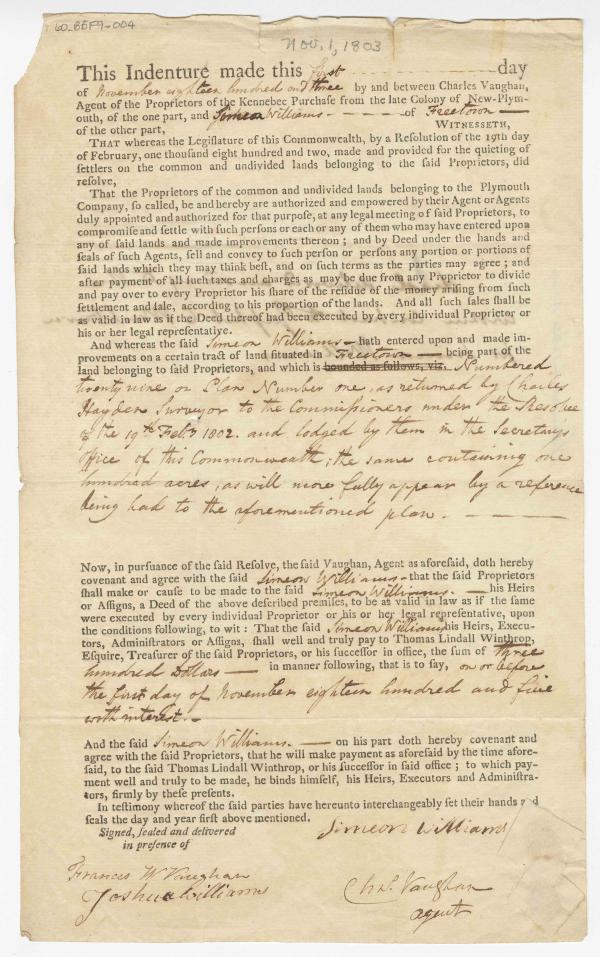 60_BSF9-004
Nov. 1, 1803
This Indenture made this first day
of November eighteen hundred and three by and between Charles Vaughan,
Agent of the Proprietors of the Kennebec Purchase from the late Colony of New-Plym-
outh, of the one part, and Simeon Williams of Freetown
of the other part, WITNESSETH,
THAT whereas the Legislature of this Commonwealth, by a Resolution of the 19th day
of February, one thousand eight hundred and two, made and provided for the quieting of
settlers on the common and undivided lands belonging to the said Proprietors, did
resolve,
That the Proprietors of the common and undivided lands belonging to the Plymouth
Company, so called, be and hereby are authorized and empowered by their Agent or Agents
duly appointed and authorized for that purpose, at any legal meeting of said Proprietors, to
compromise and settle with such persons or each or any of them who may have entered upon
any of said lands and made improvements thereon ; and by Deed under the hands and
seals of such Agents, sell and convey to such person or persons any portion or portions of
said lands which they may think best, and on such terms as the parties may agree ; and
after payment of all such taxes and charges as may be due from any Proprietor to divide
and pay over to every Proprietor his share of the residue of the money arising from such
settlement and sale, according to his proportion of the lands. And all such sales shall be
as valid in law as if the Deed thereof had been executed by every individual Proprietor or
his or her legal representative.
And whereas the said Simeon Williams hath entered upon and made im-
provements on a certain tract of land situated in Freetown being part of the
land belonging to said Proprietors, and which is bounded as follows, viz. Numbered
twenty nine on Plan Number one, as returned by Charles
Hayden Surveyor to the Commissioners under the Resolve
of the 19th Feby 1802. and lodged by them in the Secretarys
Office of this Commonwealth ; the same containing one
hundred acres, as will more fully appear by a reference
being had to the aforementioned plan.
Now, in pursuance of the said Resolve, the said Vaughan, Agent as aforesaid, doth hereby
covenant and agree with the said Simeon Williams that the said Proprietors
shall make or cause to be made to the said Simeon Williams. his Heirs
or Assigns, a Deed of the above described premises, to be as valid in law as if the same
were executed by every individual Proprietor or his or her legal representative, upon
the conditions following, to wit : That the said Simeon Williams his Heirs, Execu-
tors, Administrators or Assigns, shall well and truly pay to Thomas Lindall Winthrop,
Esquire, Treasurer of the said Proprietors, or his successor in office, the sum of three
hundred Dollars in manner following, that is to say, on or before
the first day of November eighteen hundred and five
with interest.
And the said Simeon Williams. on his part doth hereby covenant and
agree with the said Proprietors, that he will make payment as aforesaid by the time afore-
said, to the said Thomas Lindall Winthrop, or his successor in said office ; to which pay-
ment well and truly to be made, he binds himself, his Heirs, Executors and Administra-
tors, firmly by these presents.
In testimony whereof the said parties have hereunto interchangeably set their hands and
seals the day and year first above mentioned.
Signed, sealed and delivered
in presence of
Simeon Williams
Frances W Vaughan
Joshua Williams
Chas. Vaughan
agent